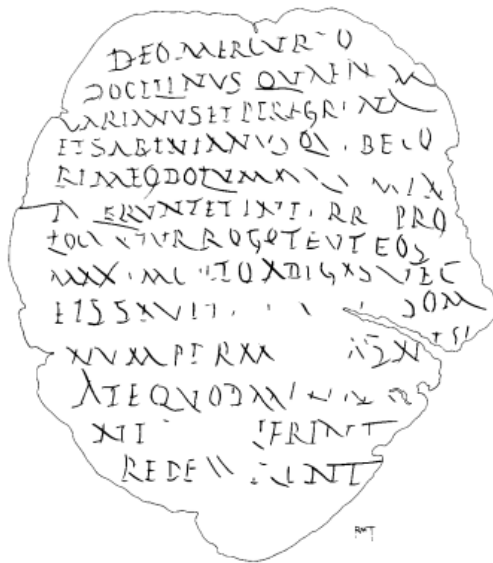 DEO MERCVRIO
DOCILINVS QVAENM
VARIANVS ET PEREGRINA
ET SABINIANVS QVI PECO
RI MEO DOLVM MALVM IN
T ERVNT ET INT RR PRO
LOCVNTVR ROGO TE VT EOS
MAXIMO LETO ADIGAS NEC
EIS SANIT SOM
NVM PERM NISI
A TE QVOD M
NI ERINT
REDEM ERINT